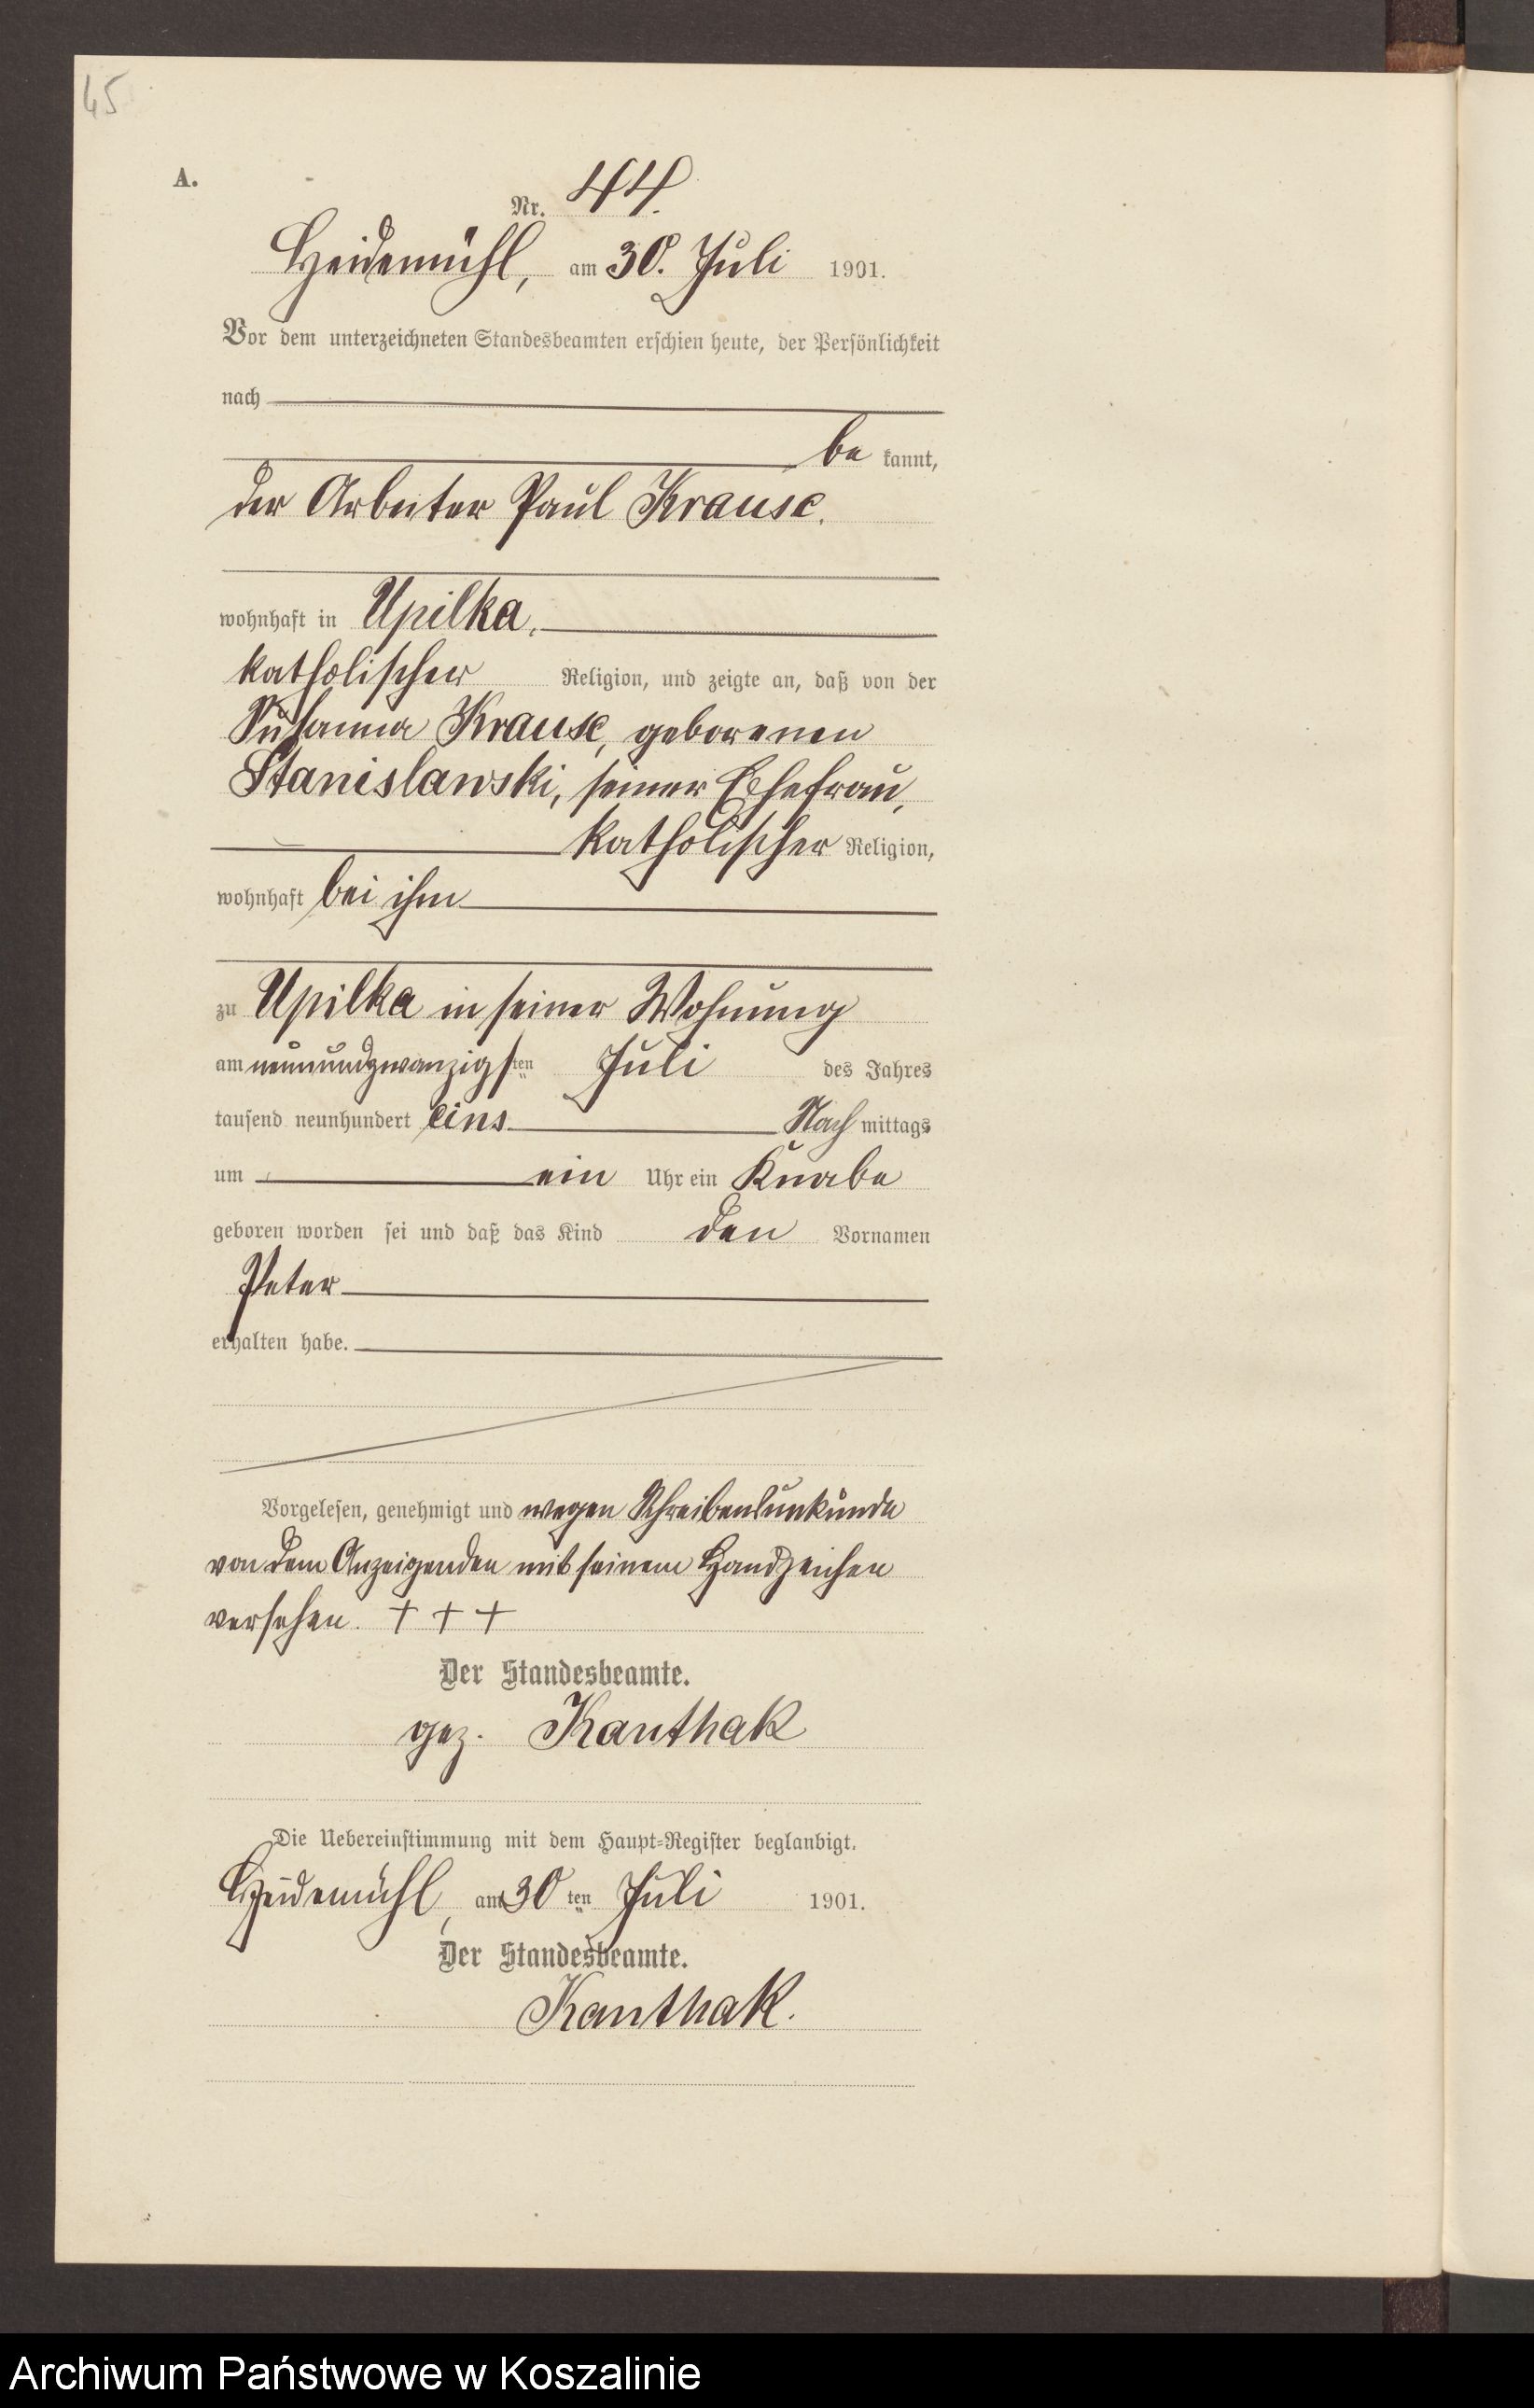 45
A.
Nr. 44.
Heidemühl, am 30. Juli 1901.
Vor dem unterzeichneten Standesbeamten erschien heute, der Persönlichkeit
nach
be kannt,
der Arbeiter Paul Krause.
wohnhaft in Upilka,
katholischer Religion, und zeigte an, daß von der
Susanna Krause, geborenen
Stanislawski, seiner Ehefrau,
katholischer Religion,
wohnhaft bei ihm
zu Upilka in seiner Wohnung
am neunundzwanzigsten Juli des Jahres
tausend neunhundert eins Nach mittags
um ein Uhr ein Knabe
geboren worden sei und daß das Kind den Vornamen
Peter
erhalten habe.
Vorgelesen, genehmigt und wegen Schreibensunkunde
von dem Anzeigenden mit seinem Handzeichen
versehen. + + +
Der Standesbeamte.
gez. Kanthak
Die Uebereinstimmung mit dem Haupt-Register beglaubigt.
Heidemühl, am 30 ten Juli 1901.
Der Standesbeamte.
Kanthak.
Archiwum Państwowe w Koszalinie